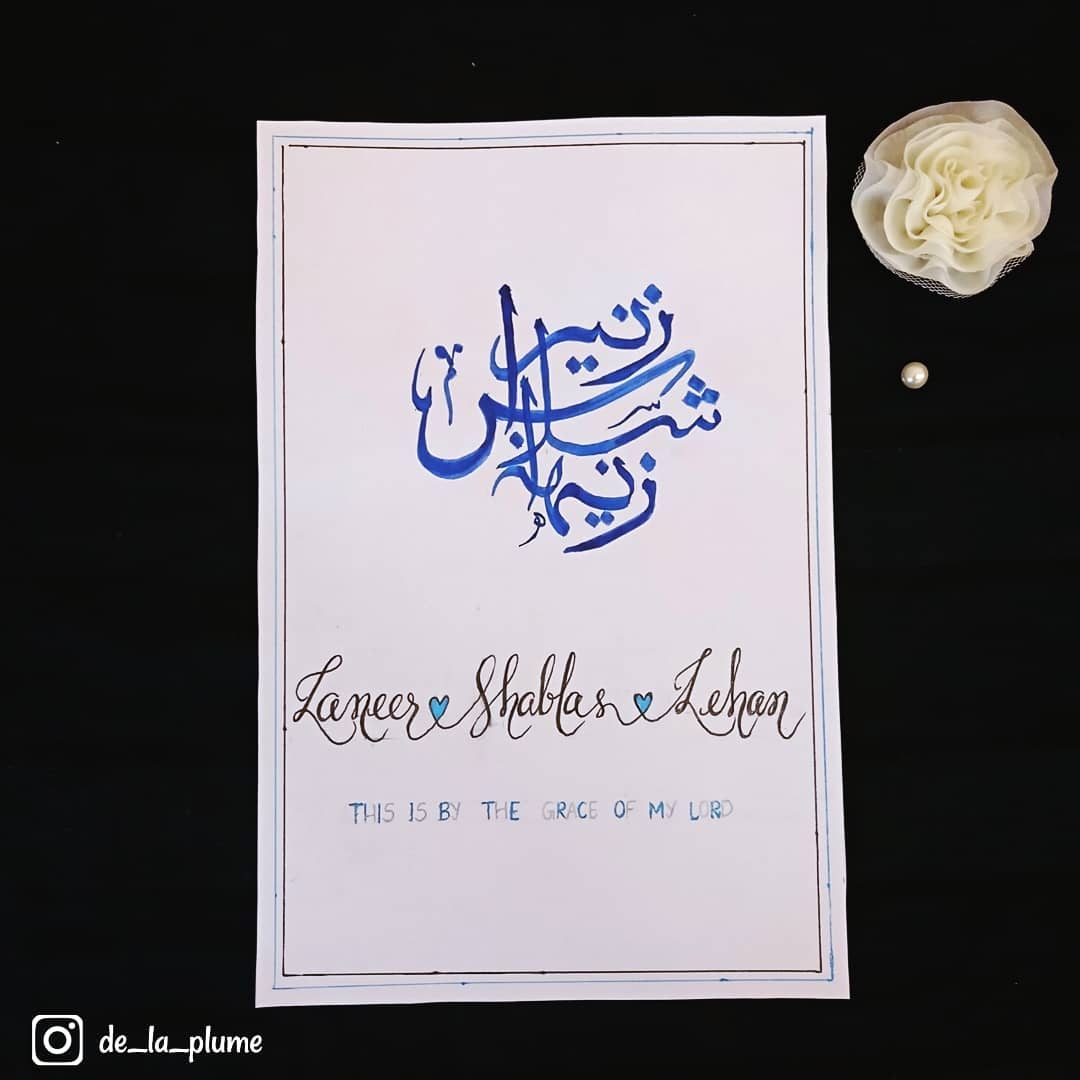 زنير
شبلاس
زيهان
Zaneer 💙 Shablas 💙 Zehan
THIS IS BY THE GRACE OF MY LORD
de_la_plume